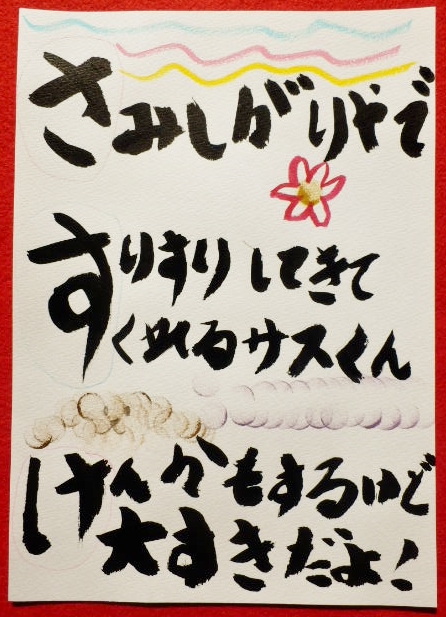 さみしがりやで
すりすりしてきて
くれるサスくん
けんかもするけど
大すきだよ！